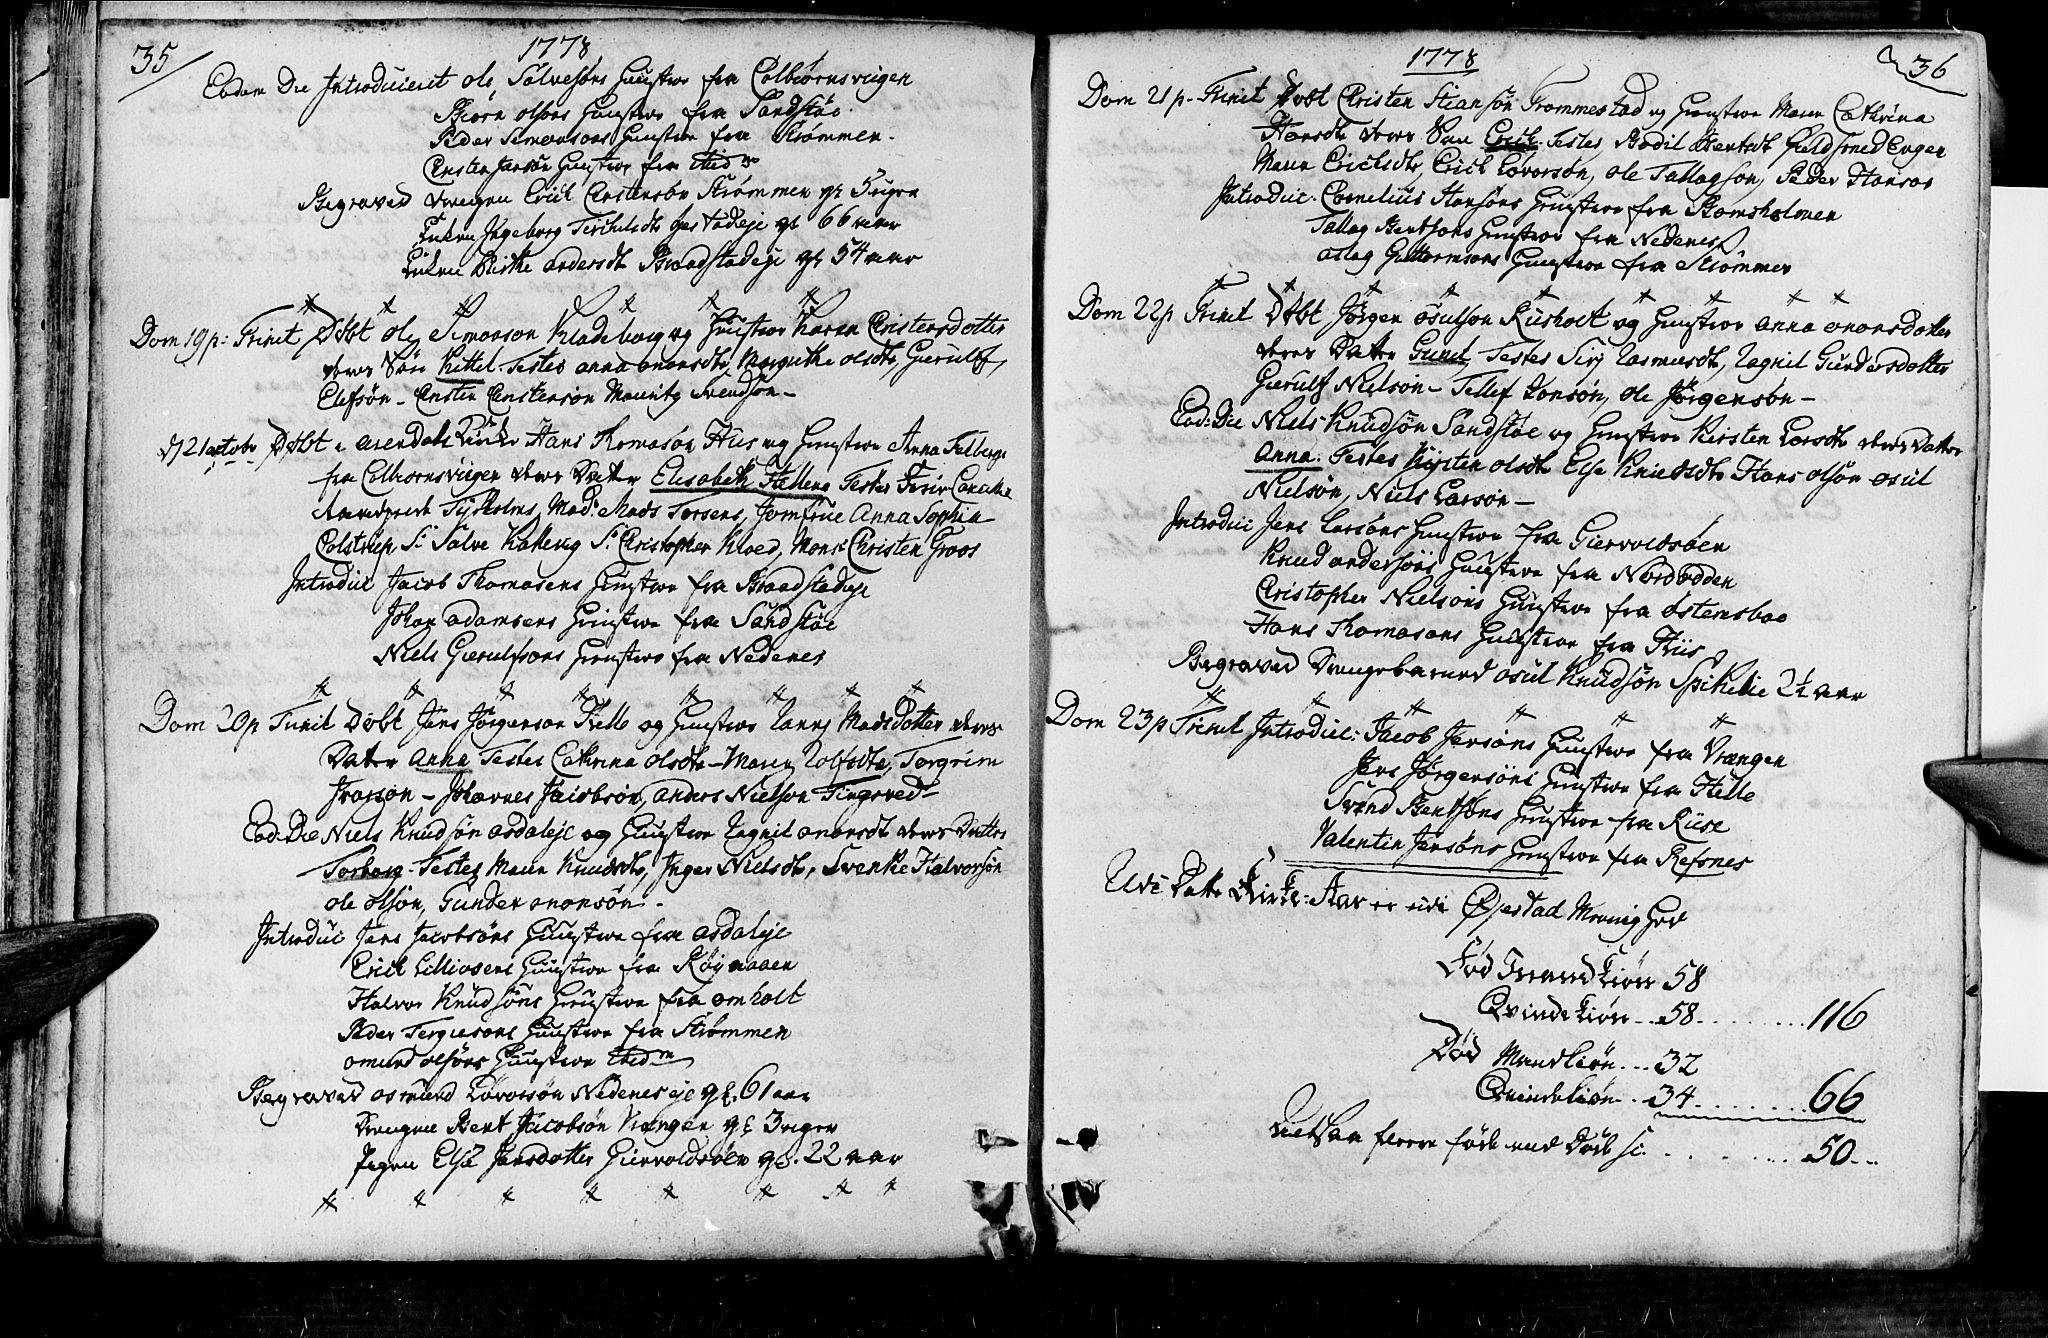 35
1778
Eodem Die Introduceret Ole Solvesøns Hustroe fra Colbiørnsviigen
Biørn Olsøns Hustroe fra Sandstøe.
Peder Simonsøns Hustroe fra Strømmen.
Cristen Jensøn Hustroe fra Ibidm
Begraved Drengen Erick Cristensøn Strømmen gl 5 uger
Enken Ingeborg Terkelsdt 66 aar
Enken Birthe Andersdt Braastadeje gl 54 aar
Dom 19 p: Trinit Døbt Ole Simonsøn Kladeborg og Hustroe Karen Cristensdotter
deres Søn Kittel. Testes Anna Anonsdt, Margrethe Olsdt, Gierulf
Elefsøn - Cristen Cristensøn Mauritz Svendsøn -
d 21 octobr Døbt i Arendals Kirke Hans Thomasøn Hiis og Hustroe Anna Falberg
fra Colbiørnsviigen deres Datter Elisabeth Hellena Testes
Tyskholms, Mad: Mads Torsens, Jomfrue Anna Sophia
Colstrup Sr Salve Kallevig Sr Christopher Kloed, Mons: Christen Groos
Introduc Jacob Thomasens Hustroe fra Braastadeje
Johan Adamsens Hustroe fra Sandstøe
Niels Gierulfsøns Hustroe fra Nedenes
Dom 20 p Trinit Døbt Jens Jørgensøn Helle og Hustroe Mads Dotter deres
Dater Anna Testes Cathrina Olsdt - Maren Rolfsdtr, Torgrim
Iversøn - Johannes Jacobsøn, Anders Nielsøn Tingsved -
Eod: Die Niels Knudsøn Asdaleje og Hustroe Ragnil Anonsdt deres Datter
Torborg - Testes Maren Knudsdt, Inger Nielsdt, Svenke Halvorsøn
Ole Olsøn, Gunder Anonsøn -
Introduc Jens Jacobsøns Hustroe fra Asdaleje
Erick Hustroe fra Røignaaen
Halvor Knudsøns Hustroe fra Omholt
Peder Tergiesons Hustroe fra Strømmen
Omund Olsøns Hustroe Ibidm
Begraved Osmund Lovorsøn Nedeneseje gl. 61 aar
Drengen Bent Jacobsøn Vrengen gl 3 uger
Pigen Else Jensdotter Giervoldsøen gl. 22 aar
1778
36
Dom 21 p. Trinit Døbt Cristen Stiansøn Trommestad og Hustroe Maren Cathrina
Hansdt deres Søn Erick Testes, Bodil Bentsdt
Maren Ericksdt, Erick Lovorsøn, Ole Tallagsøn, Peder Hansøn
Introduc. Cornelius Hansøns Hustroe fra Romsholmen
Tallag Bentsøns Hustroe fra Nedenes
Aslag Guttormsøns Hustroe fra Strømmen
Dom 22 p Trinit Døbt Jørgen Osulsøn Rusholt og Hustroe Anna Anonsdatter
deres Datter Gunil, Testes Siri Rasmusdt, Ragnil Gundersdotter
Gierulf Nielsøn - Tellef Jonsøn, Ole Jørgensøn -
Eod: Die Niels Knudsøn Sandstøe og Hustroe Kirsten Larsdt deres Datter
Anna. Testes Kirsten Olsdt Else Knudsdt Hans Olsøn Osul
Nielsøn, Niels Larsøn -
Introduc Jens Larsøns Hustroe fra Giervoldsøen
Knud Andersøns Hustroe fra Nordodden
Cristopher Nielsøns Hustroe fra Østensboe
Hans Thomasøns Hustroe fra Hiis
Begraved Drengebarnet Osul Knudsøn Spikelie 2½ aar
Dom 23 p Trinit Introduc: Jacob Jensøns Hustroe fra Vrængen
Jens Jørgensøns Hustroe fra Helle
Svend Bentsøns Hustroe fra Riise
Valentin Jensøns Hustroe fra Refsnes
Udi Dette Kirke: Aar er udi Øjestad Menighed
Fød Mandkiøn 58
Qvindekiøn . . 58 . . . . . . . . . 116
Død Mandkiøn . . . 32
Qvindekiøn . . 34 . . . . . . . . . 66
Altsaa fleere fødde end Døde . . . . . . . . 50 . . .